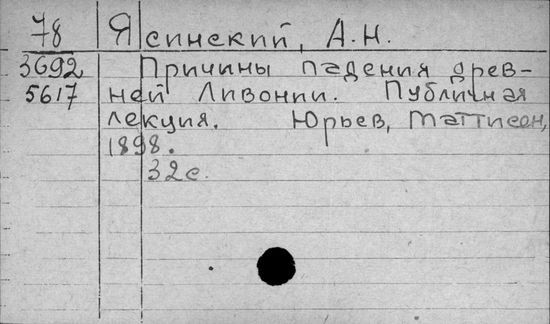 78 Ясинский, А.Н.
3692 Причины падения древ-
5617 ней Ливонии. Публичная
лекция. Юрьев, Маттисен,
1898.
32с.